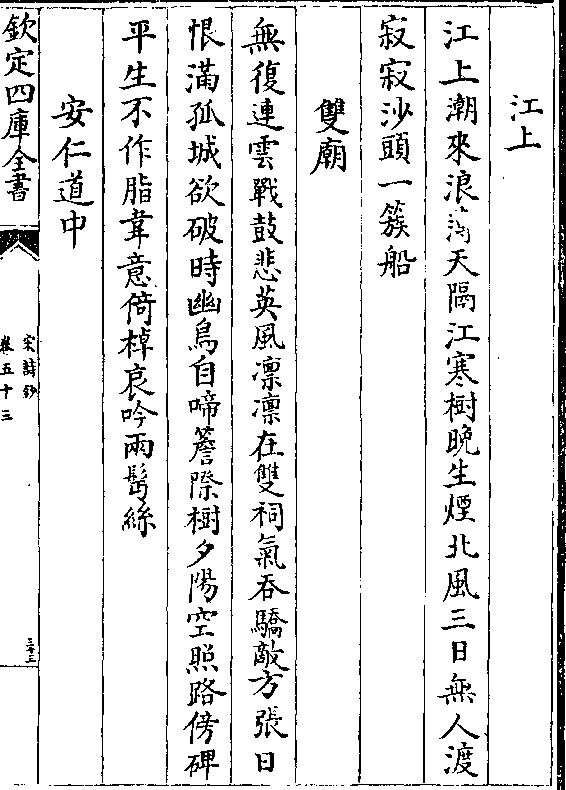 江上
江上潮來浪薄天隔江寒樹晚生煙北風三日無人渡
寂寂沙頭一簇船
雙廟
無復連雲戰鼓悲英風凛凛在雙祠氣吞驕敵方張日
恨滿孤城欲破時幽鳥自啼簷際樹夕陽空照路傍碑
平生不作脂韋意倚棹哀吟兩鬢絲
安仁道中
欽定四庫全書
宋詩鈔
卷五十三
三十三